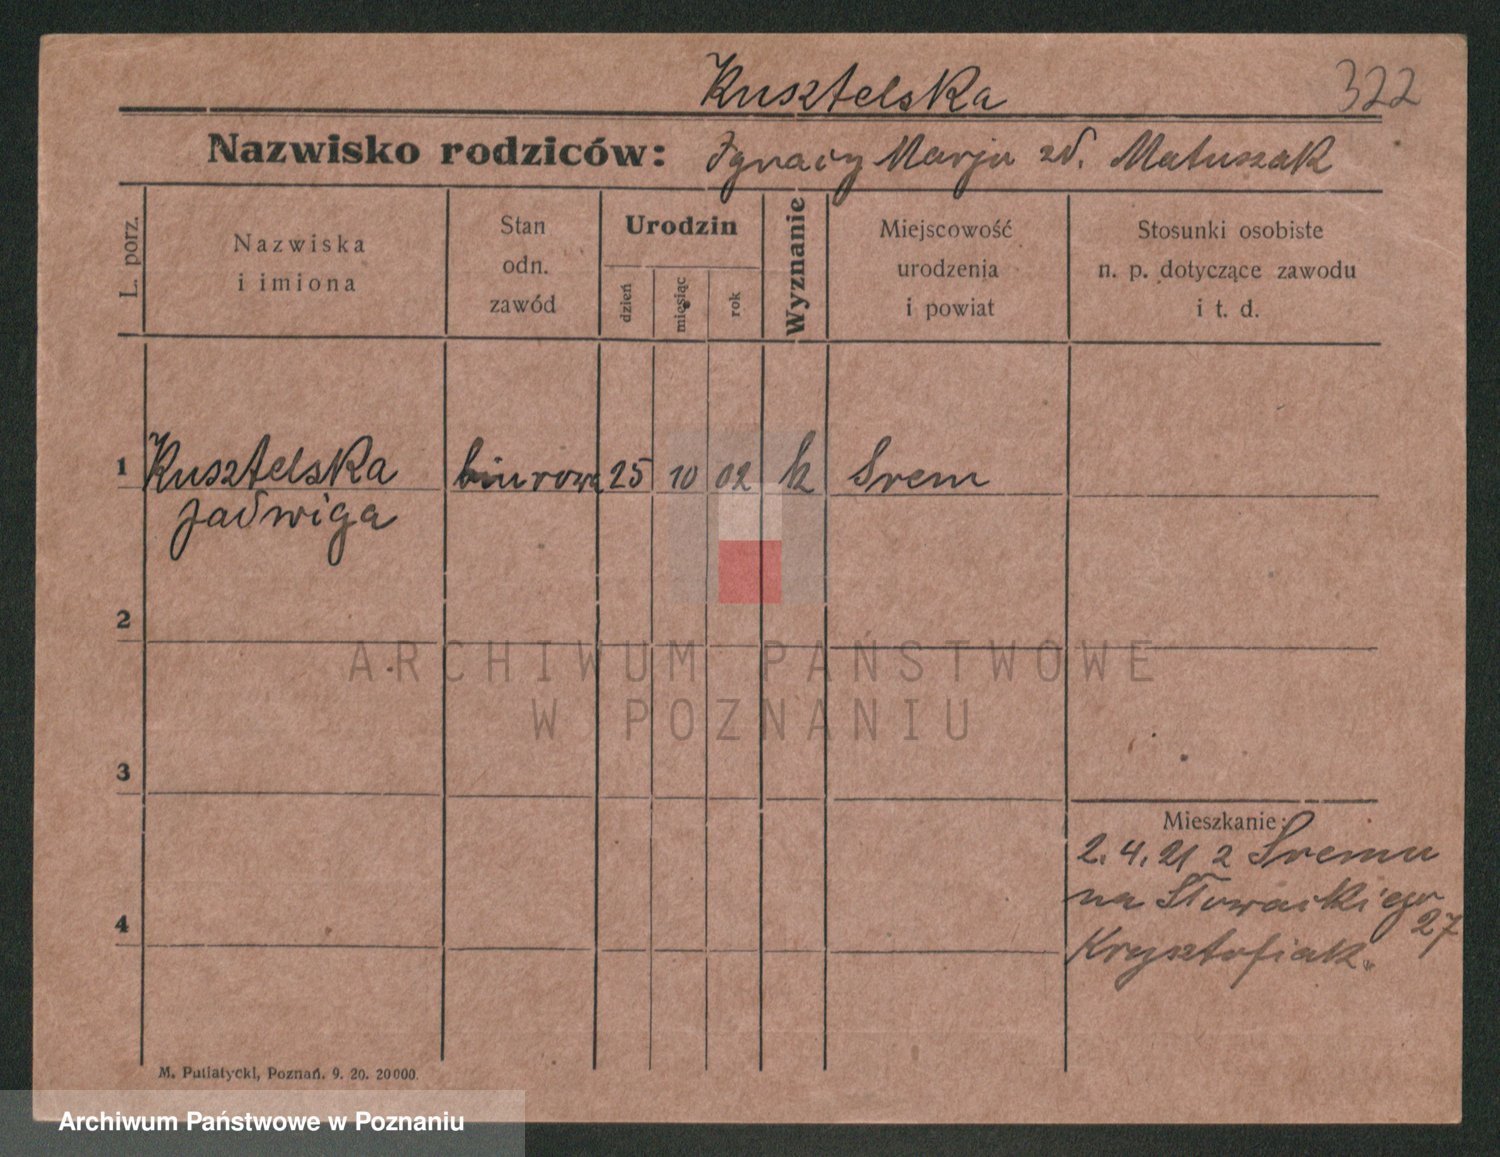 Kusztelska 322
Nazwisko rodziców: Ignacy Marja zd. Matuszak
L. porz.
Nazwiska
i imiona
Stan
odn.
zawód
Urodzin
dzień
miesiąc
rok
Wyznanie
Miejscowość
urodzenia
i powiat
Stosunki osobiste
n. p. dotyczące zawodu
i t. d.
1 Kusztelska biurowa 25 10 02 k Srem
Jadwiga
2
ARCHIWUM PAŃSTWOWE
W POZNANIU
3
Mieszkanie:
2.4.21 z Sremu
na Słowackiego
27
4
Krysztofiak.
M. Putiatycki, Poznań. 9. 20. 20000.
Archiwum Państwowe w Poznaniu